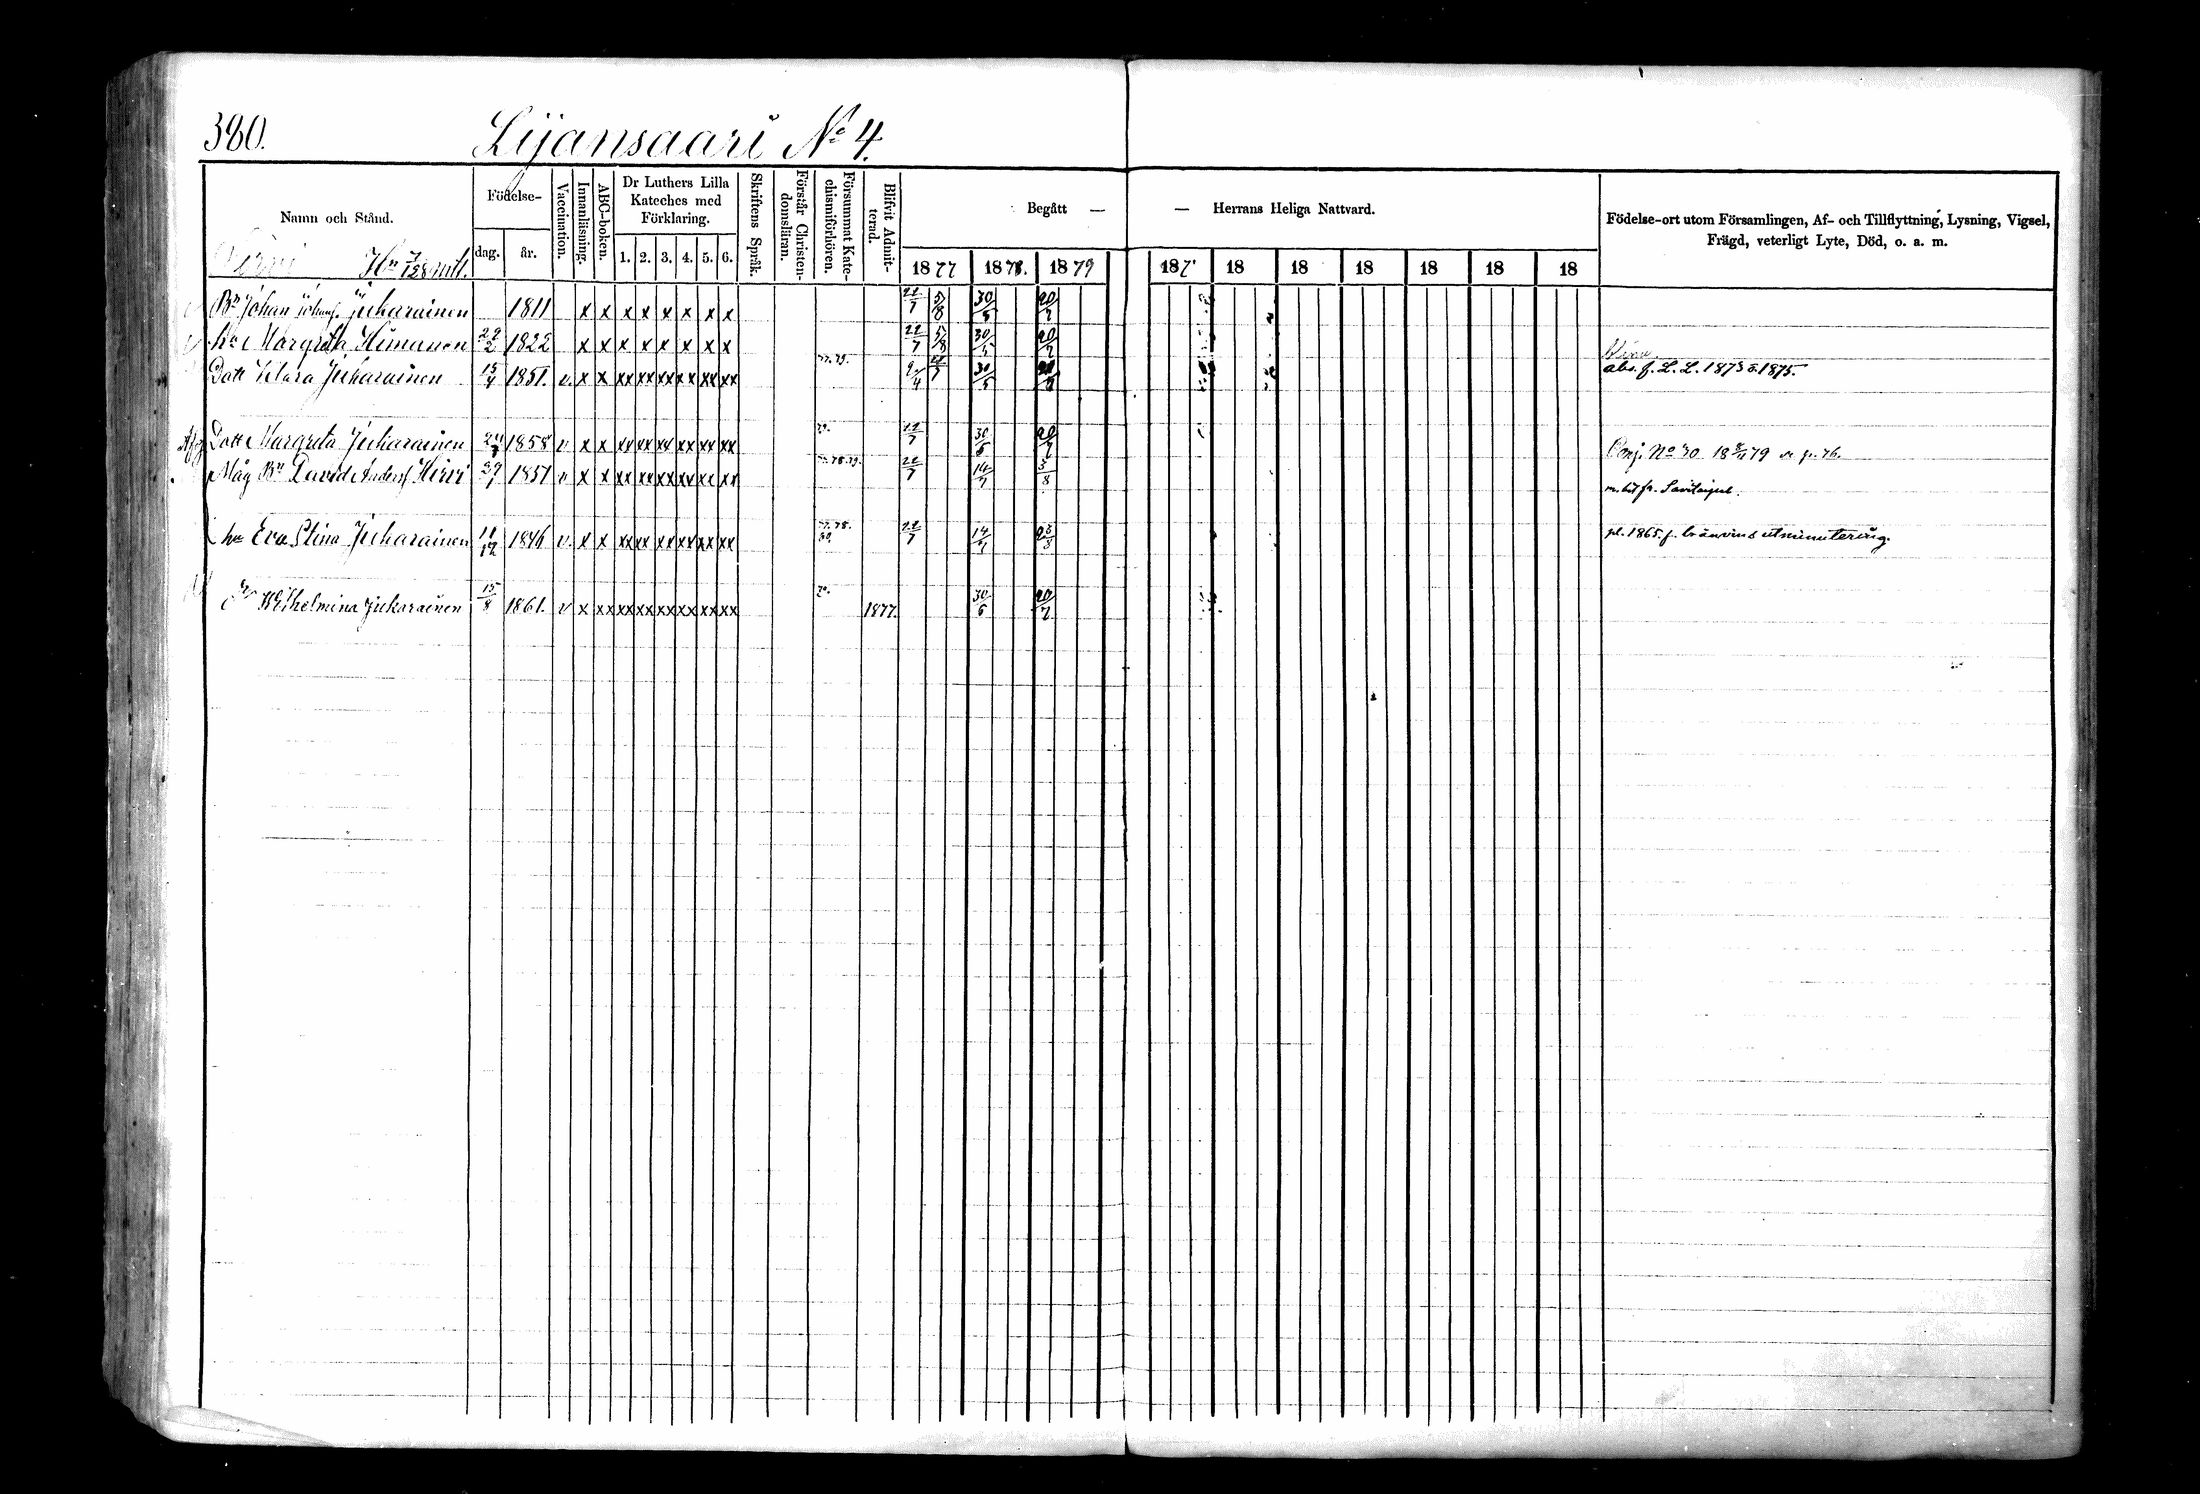 380.
Lijansaari No 4.
Namn och Stånd.
Födelse-
dag.
år.
Vaccination.
Innanläsning.
ABC-boken.
Dr Luthers Lilla Kateches med Förklaring.
1. 2. 3. 4. 5. 6.
Skriftens Språk.
Förstår Christendomsläran.
Försummat Katechismiförhören.
Blifvit Admitterad.
Begått — — Herrans Heliga Nattvard.
1877 1878. 1879 187 18 18 18 18 18 18
Födelse-ort utom Församlingen, Af- och Tillflyttning, Lysning, Vigsel, Frägd, veterligt Lyte, Död, o. a. m.
Hirvi Hn 7/128 mtl.
Bn Johan Johansf. Jukarainen 1811 x x x x x x x x 22/7 5/8 30/5 20/7
hu Margreta Himanen 22/2 1822 x x x x x x x x 22/7 5/8 30/5 20/7
Dott Klara Jukarainen 15/4 1851. v. x x xx xx xx xx xx xx 77.79. 30/5 abs. f. L. L. 1873 o. 1875.
Afg Dott Margreta Jukarainen 1858 v x x xx xx xx xx xx xx 79. 22/7 30/5 20/7 Conj. No 30 1879 p. 76.
Måg Bn David Andersf Hirvi 1851 v x x xx xx xx xx xx xx 77.78.79. 22/7 14/7 3/8 m. bet fr. Savitaipal.
hu Eva Stina Jukarainen 11/12 1846 v. x x xx xx xx xx xx xx 22/7 14/7 pl. 1865 f. bränvins utminutering.
Wilhelmina Jukarainen 15/8 1861. v x xx xx xx xx xx xx xx 79. 1877. 30/5 20/7